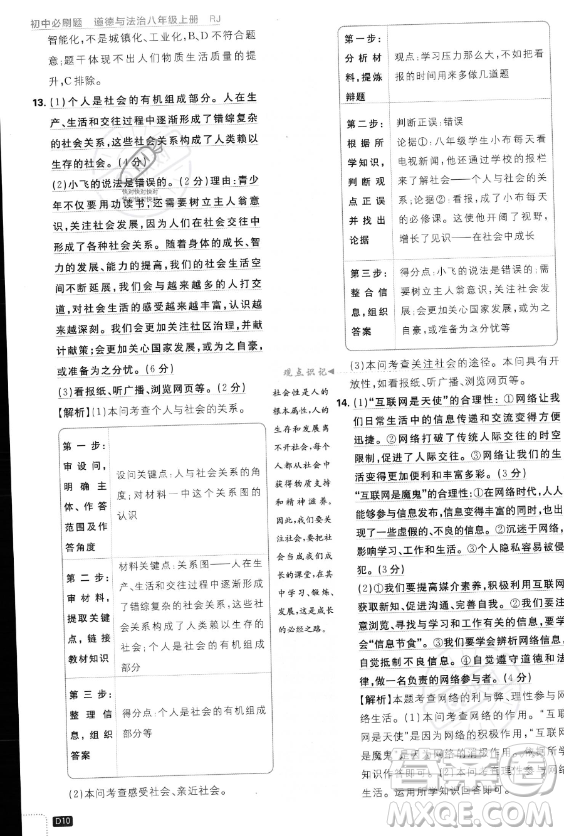 初中必刷题 道德与法治八年级上册 RJ
智能化,不是城镇化、工业化,B、D不符合题
意;题干体现不出人们物质生活质量的提
升,C排除。
13.(1)个人是社会的有机组成部分。人们在生
产、生活的交往过程中逐渐形成了错综复
杂的社会关系,这些社会关系构成了人类赖以
生存的社会。(4分)
(2)小飞的说法是错误的。(2分)理由:青少
年不仅要用功读书,还需要树立主人翁意
识,关注社会,因为人们在社会交往中
形成了各种社会关系。(2分)随着身体、智
力和能力的发展,我们的社会生活空间
不断延展,我们会与越来越多的人打交
道,对社会生活的感受越来越丰富,认识越
来越深刻。我们要关注社区治理,并献计
献策;会更加关心国家发展,或为之自豪,
或准备为之分忧。(6分)
(3)看报纸、听广播、浏览网页等。(2分)
【解析】(1)本问考查个人与社会的关系。
第一步:
审设问,
明确主
体、作答
范围及作
答角度
设问关键点:人与社会关系的角
度;对材料一中这个关系图的
认识
第二步:
审材料,
提取关键
点,链接
教材知识
材料关键点:关系图——人在生
产、生活的交往过程中逐渐形成
了错综复杂的社会关系,这些社
会关系构成了人类赖以生存的
社会
第三步:
整理信
息,组织
答案
得分点:个人是社会的有机组成
部分等
(2)本问考查感受社会、亲近社会。
D10
观点识记
社会性是人的
根本属性,人的
生存和发展离
不开社会,每个
人都从社会中
获得物质支持
和精神滋养。
因此,我们要关
注社会,社会是
我们成长的课
堂,在其中学习、锻炼、
发展,是成长
的必经之路。
第一步:
分析材
料,提炼
辩题
观点:学习压力那么大,不如把看
报的时间用来多做几道题
第二步:
根据所
学知识,
判断观
点正误
并找出
论据
判断正误:错误
论据①:八年级学生小布每天看
电视新闻,他以学校的报栏
来了解社会——个人与社会的
关系 论据②:看报,成了小布每天
的必修课。这开阔了他的视野,
增长了他的智慧——在社会中成长
第三步:
整合信
息,组织
答案
得分点:小飞的说法是错误的;
需要树立主人翁意识,关注社会;
更加关心国家发展,或为之自豪,
或准备为之分忧等
(3)本问考查关注社会的途径。本问具有开
放性,如看报纸、听广播、浏览网页等。
14.(1)“互联网是天使”的合理性:①网络让我
们日常生活中的信息传递和交流变得方便
迅捷。②网络打破了传统人际交往的时空
限制,促进了人际交往。(3分)
“互联网是魔鬼”的合理性:①网络让人人
能够参与信息发布,信息丰富的同时,也出
现了一些虚假的、不良信息。②沉迷于网络,
影响学习、工作和生活。(3分)
(2)①我们要提高媒介素养,积极利用互联网
获取新知、促进沟通、完善自我。②我们要
注意浏览、寻找与学习和工作有关的信息,学会
“信息节食”。③我们要学会辨析网络信息,
让谣言止于智者。④自觉遵守道德和法
律,做一名负责的网络参与者。(4分)
【解析】本题考查网络的利与弊、理性参与网
络生活。(1)本问考查网络的作用。“互联网
是天使”因为网络的积极作用,“互联网
是魔鬼”因为网络的消极作用。根据所学
知识作答即可。